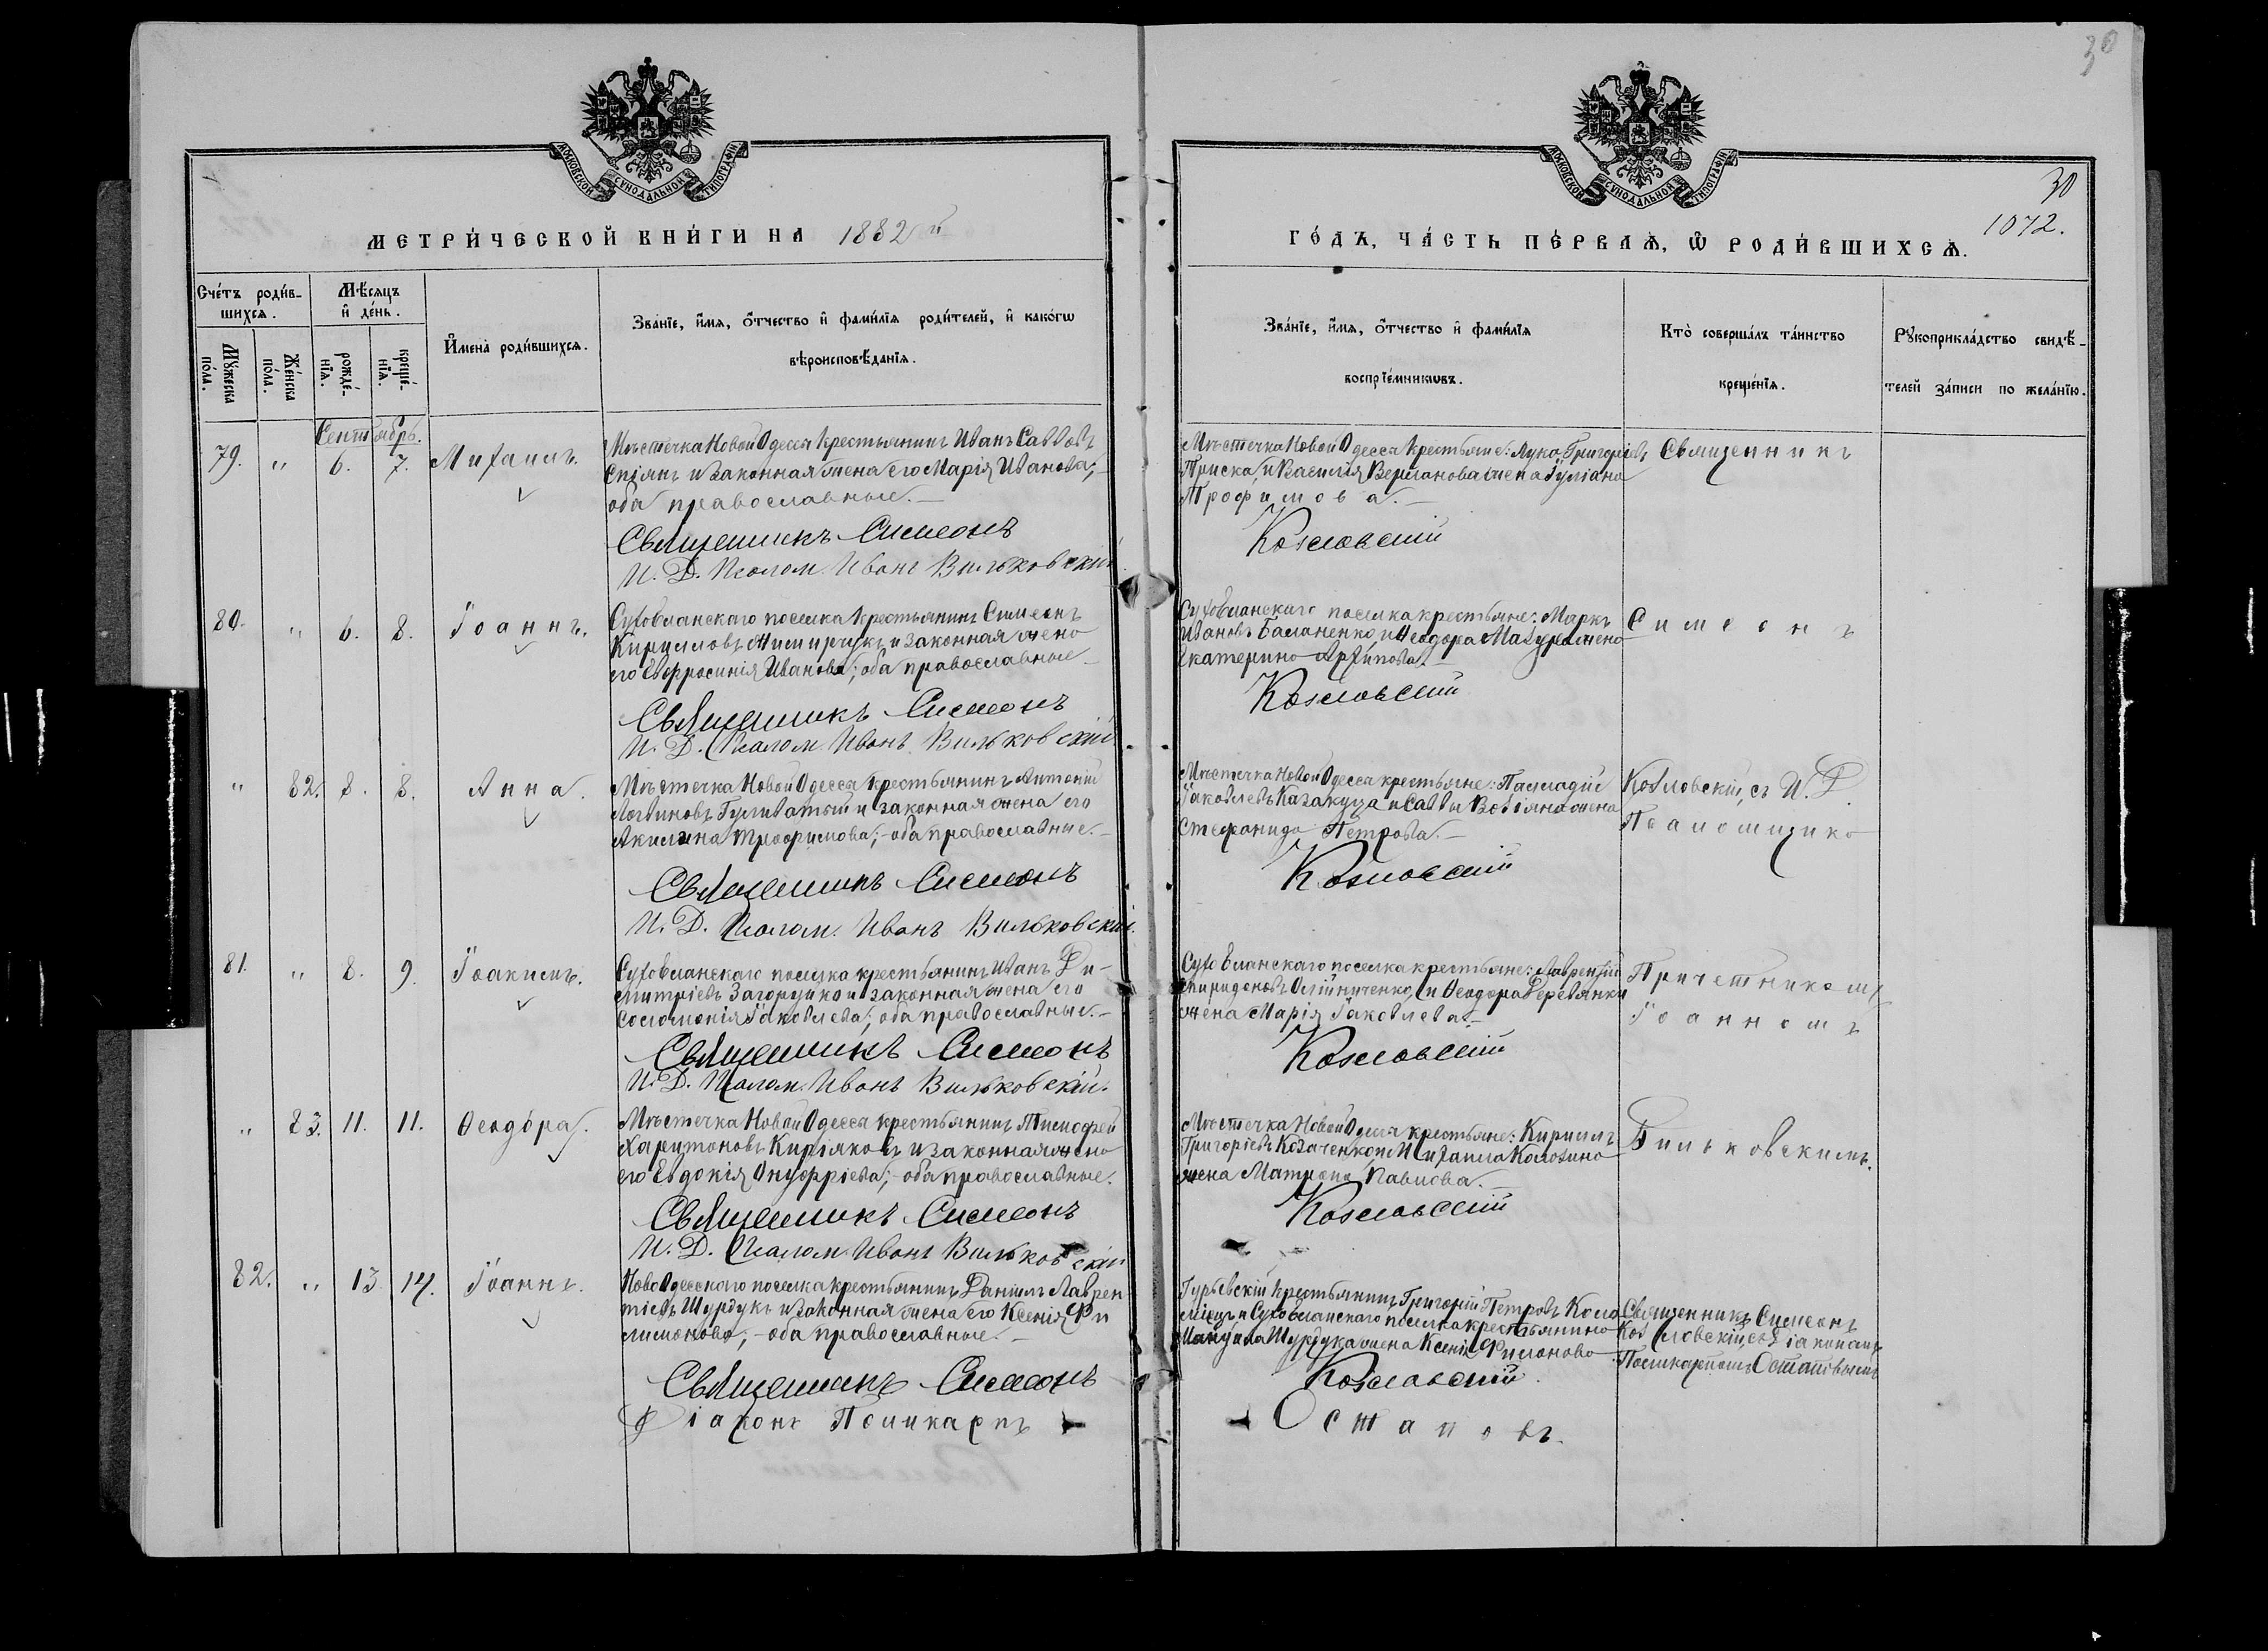 30
МОСКОВСКОЙ СѴНОДАЛЬНОЙ ТИПОГРАФІИ
МОСКОВСКОЙ СѴНОДАЛЬНОЙ ТИПОГРАФІИ
МЕТРИ́ЧЕСКОЙ КНИ́ГИ НА 1882 й
30
1072.
ГО́ДЪ, ЧА́СТЬ ПЕ́РВАѦ, Ѡ РОДИ́ВШИХСѦ.
Сче́тъ роди́в-
шихсѧ.
Мѣ́сѧцъ
и҆ де́нь.
Мꙋ́жеска
по́ла.
Же́нска
по́ла.
рожде́-
нїѧ.
креще́-
нїѧ.
И҆мена̀ роди́вшихсѧ.
Зва́нїе, и҆́мѧ, ѻ҆́тчество и҆ фами́лїѧ роди́телей, и҆ како́гѡ
вѣроисповѣ́данїѧ.
Зва́нїе, и҆́мѧ, ѻ҆́тчество и҆ фами́лїѧ
воспрїе́мникѡвъ.
Кто̀ соверша́лъ та́инство
креще́нїѧ.
Рꙋкоприкла́дство свидѣ́-
телей за́писи по жела́нїю.
Сентябрь.
79. " 6. 7. Михаилъ.
Мѣстечка Новой Одесса крестьянинъ Иванъ Саввовъ
Спіянъ и законная жена его Марія Иванова;
оба православные.
Священникъ Симеонъ
И. Д. Псалом. Иванъ Вильковскій
Мѣстечка Новой Одесса крестьяне: Лука Григоріевъ
Приска, и Василія жена Іуліана
Трофимова.
Козловскій
Священникъ
80. " 6. 8. Іоаннъ.
Суховланскаго поселка крестьянинъ Симеонъ
Кирилловъ и законная жена
его Евфросинія Иванова; оба православные
Священникъ Симеонъ
И. Д. Псалом. Иванъ Вильковскій
Суховланскаго поселка крестьяне: Маркъ
Ивановъ Баланенко, и Ѳеодора Мазура жена
Екатерина Архипова.
Козловскій
Симеонъ
" 82. 8. 8. Анна.
Мѣстечка Новой Одесса крестьянинъ Антоній
Логвиновъ и законная жена его
Акилина Трофимова; оба православные.
Священникъ Симеонъ
И. Д. Псалом. Иванъ Вильковскій.
Мѣстечка Новой Одесса крестьяне: Палладій
Іаковлевъ и Саввы жена
Стефанида Петрова.
Козловскій
Козловскій, съ И. Д.
Псаломщика
81. " 8. 9. Іоакимъ.
Суховланскаго поселка крестьянинъ Иванъ Ди-
митріевъ Загоруйко и законная жена его
Соломонія Іаковлева; оба православные.
Священникъ Симеонъ
И. Д. Псалом. Иванъ Вильковскій.
Суховланскаго поселка крестьяне: Лаврентій
Спиридоновъ Олійниченко, и Ѳеодора Деревянки
жена Марія Іаковлева.
Козловскій
Причетникомъ
Іоанномъ
" 83. 11. 11. Ѳеодора.
Мѣстечка Новой Одесса крестьянинъ Тимофей
Харитоновъ Киріяковъ и законная жена
его Евдокія Онуфріева; оба православные.
Священникъ Симеонъ
И. Д. Псалом. Иванъ Вильковскій
Мѣстечка Новой Одесса крестьяне: Кириллъ
Григоріевъ Козаченко, и Михаила
жена Матрона Павлова.
Козловскій
Вильковскимъ.
82. " 13. 14. Іоаннъ.
Новоодесскаго поселка крестьянинъ Даніилъ Лаврен
тіевъ Шурдукъ и законная жена его Ксенія Фи
лимонова; оба православные.
Священникъ Симеонъ
Діаконъ Поликарпъ
Гурьевскій крестьянинъ Григорій Петровъ Коло
міецъ и Суховланскаго поселка крестьянина
Шурдука жена Ксенія Филонова
Козловскій
Остаповъ.
Священникъ Симеонъ
Козловскій, съ Діакономъ
Поликарпомъ Остаповымъ